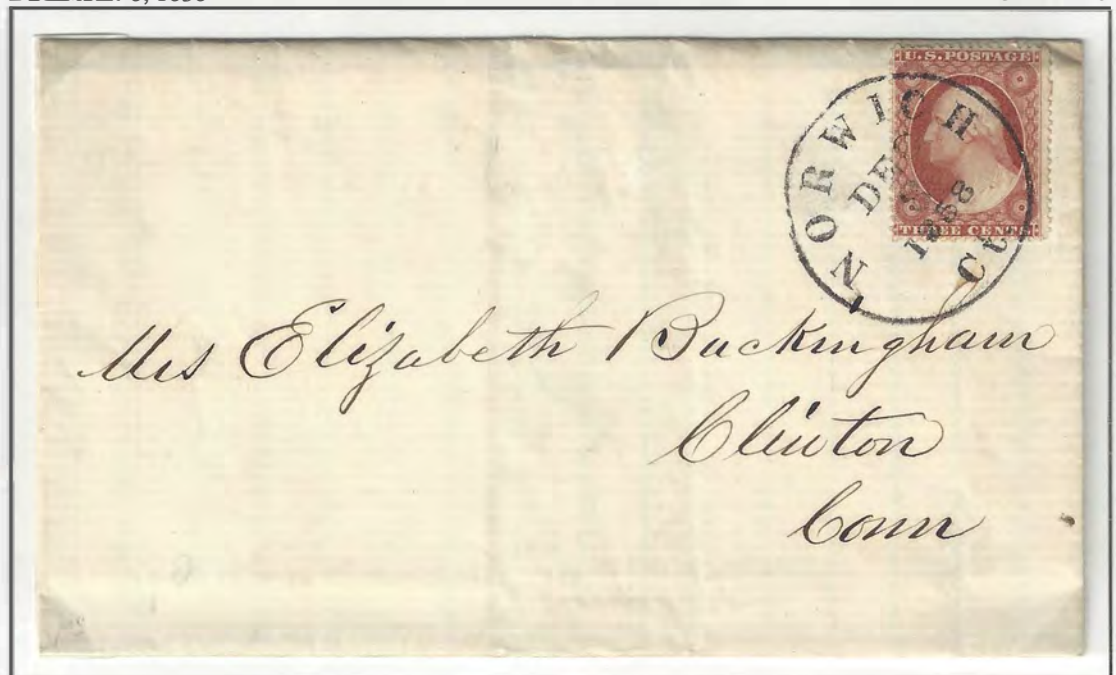 U.S. POSTAGE
THREE CENTS
NORWICH
DE
1858
Ct.
Mrs Elizabeth Buckingham
Clinton
Conn